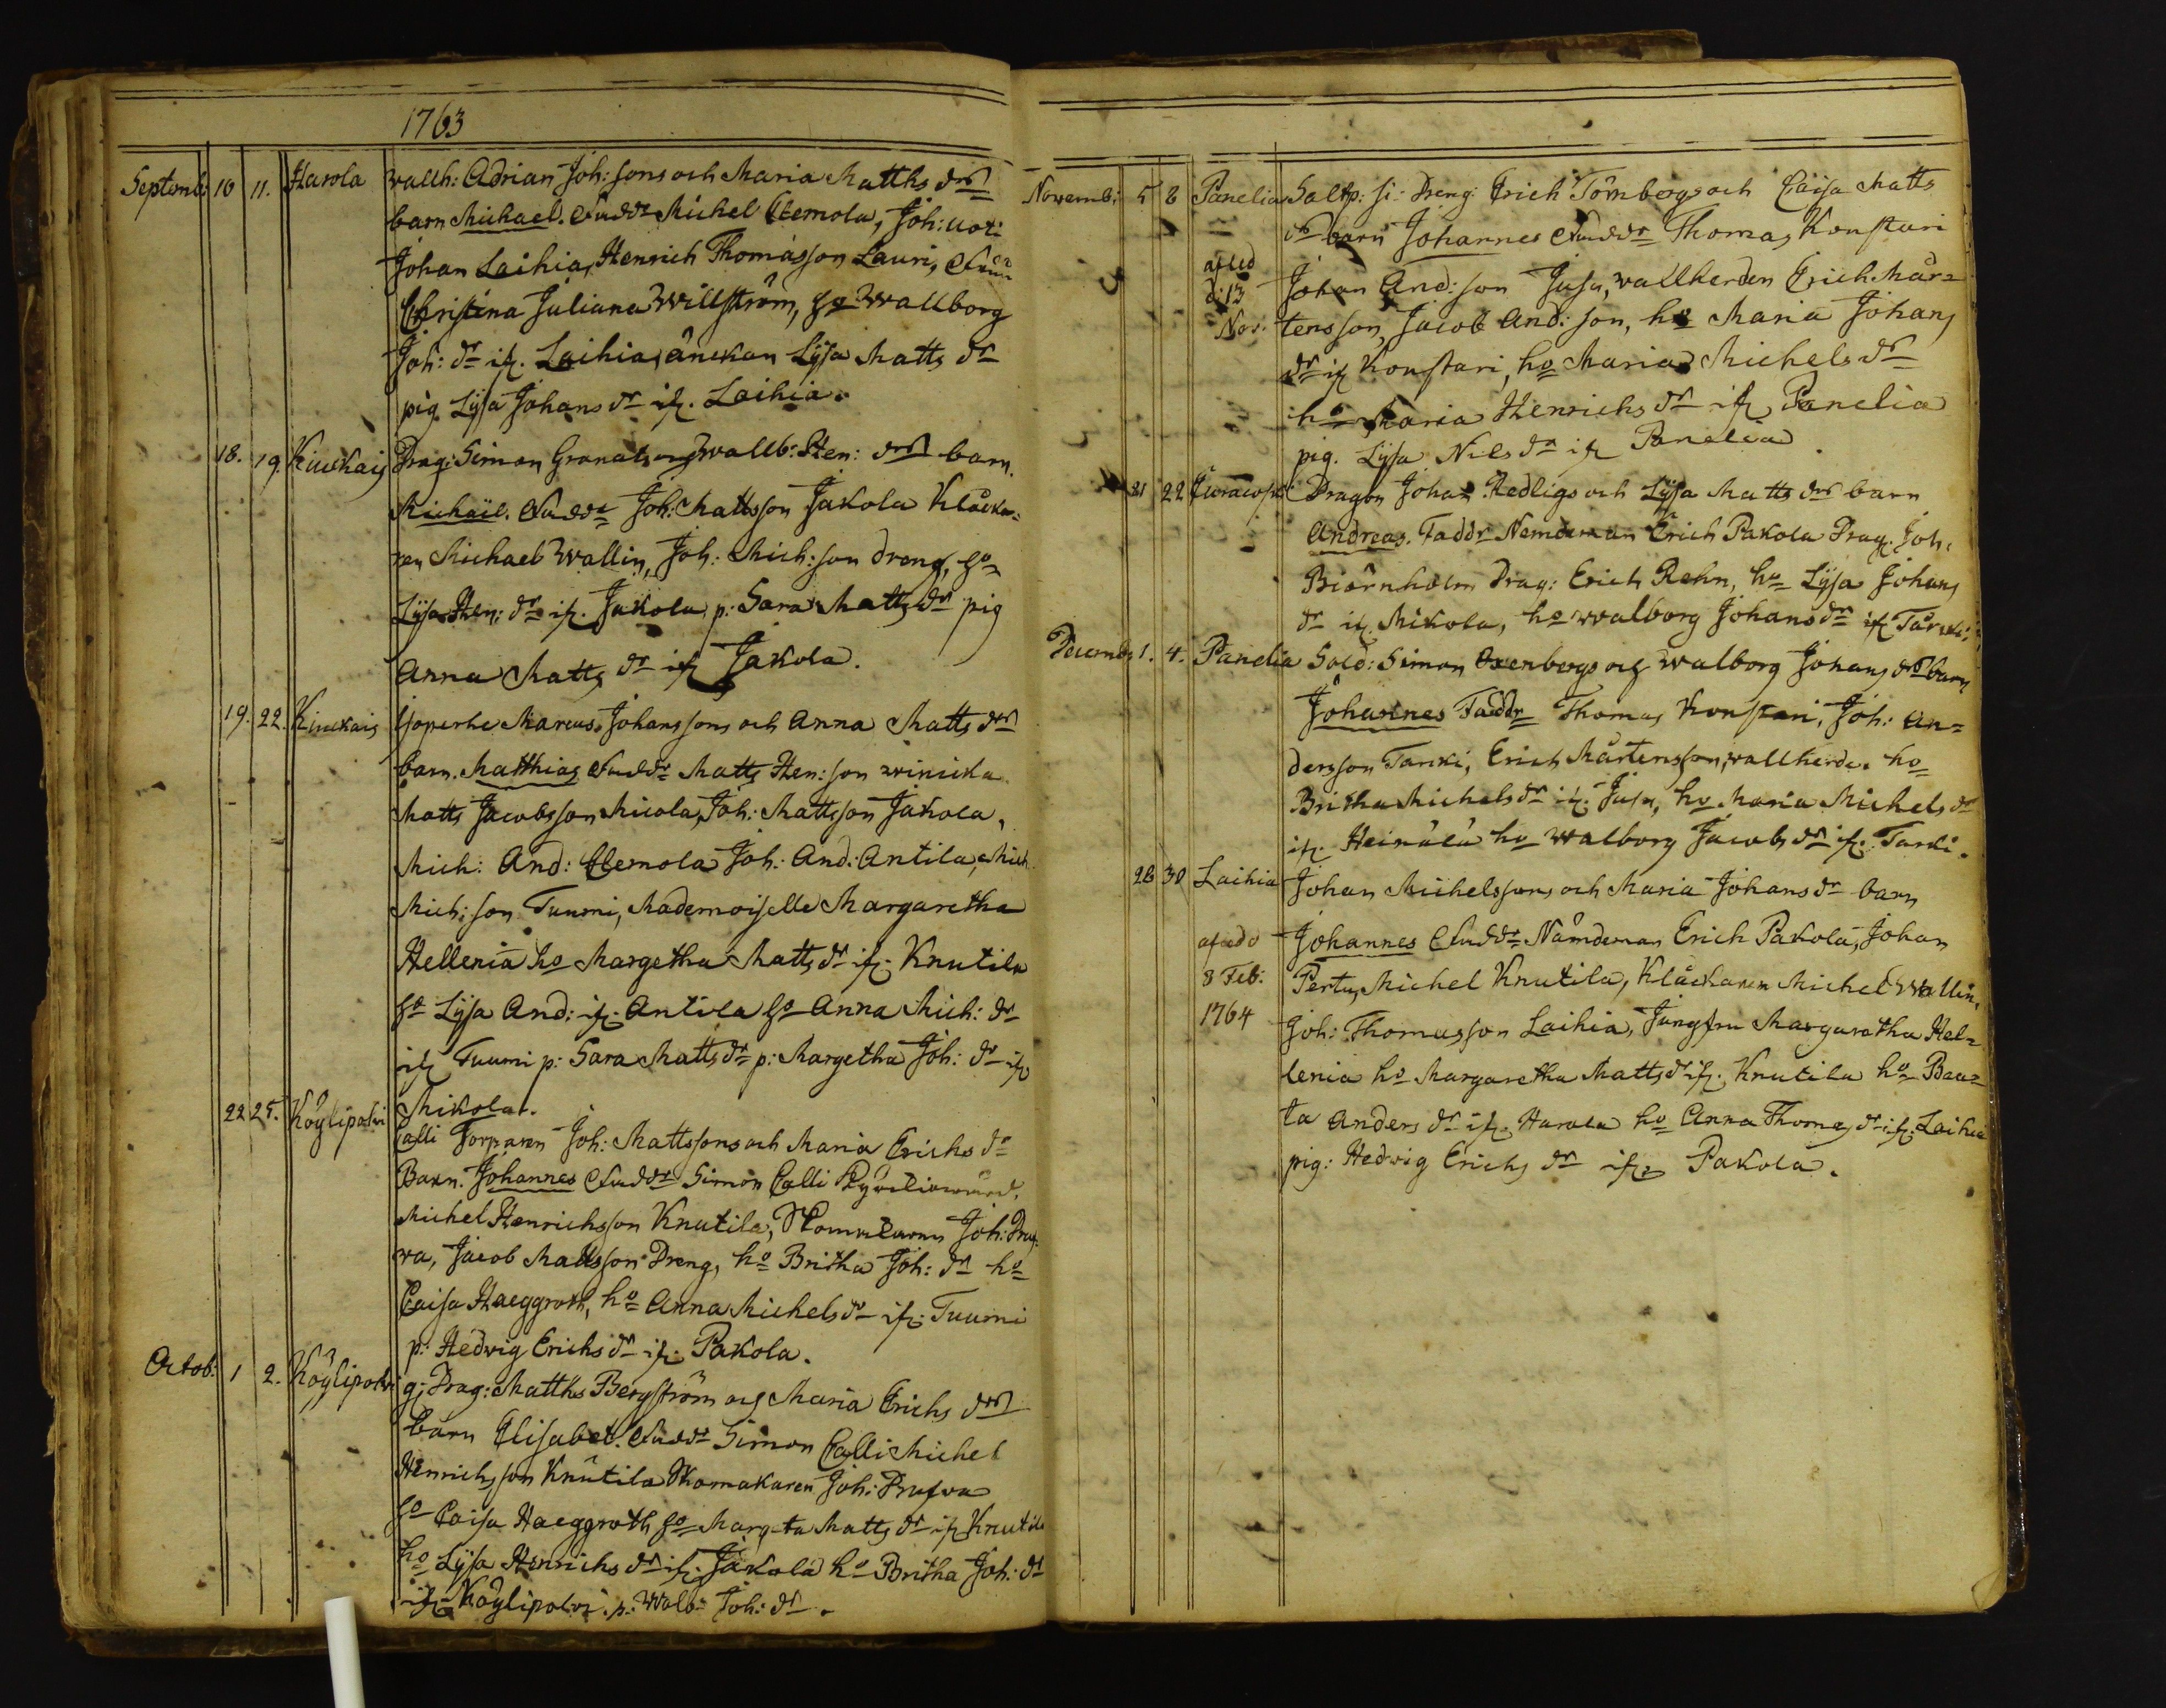 1763
Septemb: 10 11. Harola Wallh: Adrian Joh: sons och Maria Matths dr
barn Michael. Faddr Michel Clemola, Joh: Uoti
Johan Laihia, Henrich Thomasson Lauri,
Christina Juliana Willström, ho Wallborg
Joh: dr ifr. Laihia, änckan Lÿsa Matts dr
pig. Lÿsa Johans dr ifr. Laihia.
18. 19 Kiuckais Drag: Simon Granats och Wallb: Hen: dr barn.
Michaël. Faddr Joh: Mattsson Jakola Klåcka-
ren Michael Wallin, Joh: Mich: son dreng, ho
Lÿsa Hen: dr ifr. Jakola p: Sara Matts dr pig
Anna Matts dr ifr Jakola.
19. 22. Kiuckais Marcus Johanssons och Anna Matts dr
barn. Matthias Faddr Matts Hen: son
Matts Jacobsson Micola, Joh: Mattsson Jakola,
Mich: And: Clemola Joh: And: Antila, Mich
Mich: son Tuumi, Mademoiselle Margaretha
Hellenia ho Margetha Matts dr ifr. Knutila
ho Lÿsa And: ifr. Antila ho Anna Mich: dr
ifr Tuumi p: Sara Matts dr p: Margetha Joh: dr ifr
Mikola.
22 25. Köylipolvi Calli Torparen Joh: Mattssons och Maria Erichs dr
Barn. Johannes Faddr Simon Calli
Michel Henrichsson Knutila, Skomakaren Joh:
va, Jacob Mattsson Dreng, ho Britha Joh: dr ho
Caisa Haeggroth, ho Anna Michels dr ifr. Tuumi
p: Hedvig Erichs dr ifr. Pakola.
Octob: 1 2. Köylipolvi Drag: Matths Bergström och Maria Erichs dr
barn Elisabet. Faddr Simon Calli Michel
Henrichsson Knutila Skomakaren Joh:
ho Caisa Haeggroth ho Margeta Matts dr ifr Knutila
ho Lÿsa Henrichs dr ifr. Jakola ho Britha Joh: dr
ifr Köylipolvi. p: Walb: Joh: dr.
Novemb: 5 8 Panelia Dreng: Erich Törnbergs och Caisa Matts
dr barn Johannes Faddr Thomas Konstari
afled
d: 13 Johan And: son Jusa, vallherden Erich Mår-
Nov. tensson, Jacob And: son, ho Maria Johans
dr ifr Konstari, ho Maria Michels dr
ho Maria Henrichs dr ifr. Panelia
pig. Lÿsa Nils dr ifr Panelia
21 22 Dragon Johan Hedligs och Lÿsa Matts dr barn
Andreas. Faddr Nemdeman Erich Pakola Drag. Joh.
Biörnholm Drag: Erich Rehn, ho Lÿsa Johans
dr ifr. Mikola, ho Walborg Johans dr ifr
Decemb: 1. 4. Panelia Sold: Simon Oxenbergs och Walborg Johans dr barn
Johannes Faddr Thomas Konstari, Joh: An-
dersson Tarki, Erich Mårtensson, vallherde. ho
Britha Michels dr ifr. Jusa, ho Maria Michels dr
ifr. Heinälä ho Walborg Jacobs dr ifr. Tarki.
28 30 Laihia Johan Michelssons och Maria Johans dr barn
Johannes Faddr Nämdeman Erich Pakola, Johan
8 Feb: Pertu, Michel Knutila, Klåckaren Michel Wallin,
1764 Joh: Thomasson Laihia, Jungfru Margaretha Hel-
lenia ho Margaretha Matts dr ifr. Knutila ho Bea-
ta Anders dr ifr. Harola ho Anna Thomas dr ifr. Laihia
pig: Hedvig Erichs dr ifr Pakola.